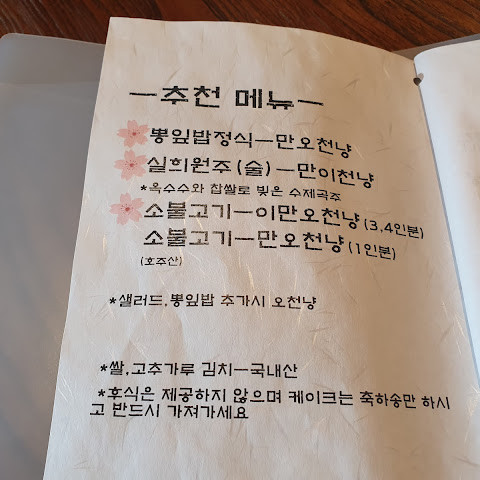 ㅡ추천 메뉴ㅡ
뽕잎밥정식ㅡ만오천냥
실희원주(술)ㅡ만이천냥
*옥수수와 찹쌀로 빚은 수제곡주
소불고기ㅡ이만오천냥(3,4인분)
소불고기ㅡ만오천냥(1인분)
(호주산)
*샐러드,뽕잎밥 추가시 오천냥
*쌀,고추가루 김치ㅡ국내산
*후식은 제공하지 않으며 케이크는 축하송만 하시
고 반드시 가져가세요